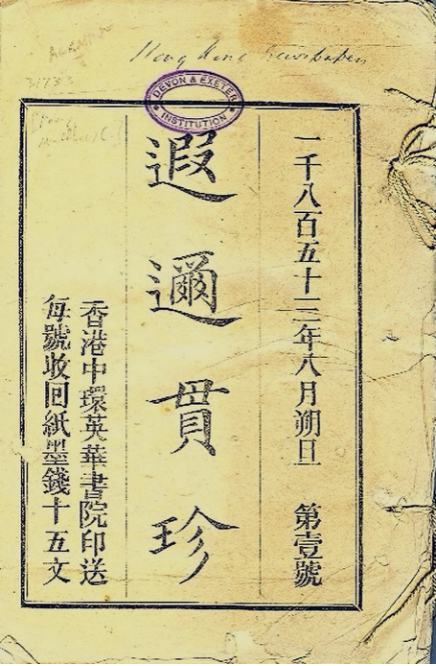 Hong Kong Newspaper
DEVON & EXETER
INSTITUTION
一千八百五十三年八月朔旦 第壹號
遐邇貫珍
香港中環英華書院印送
每號收回紙墨錢十五文